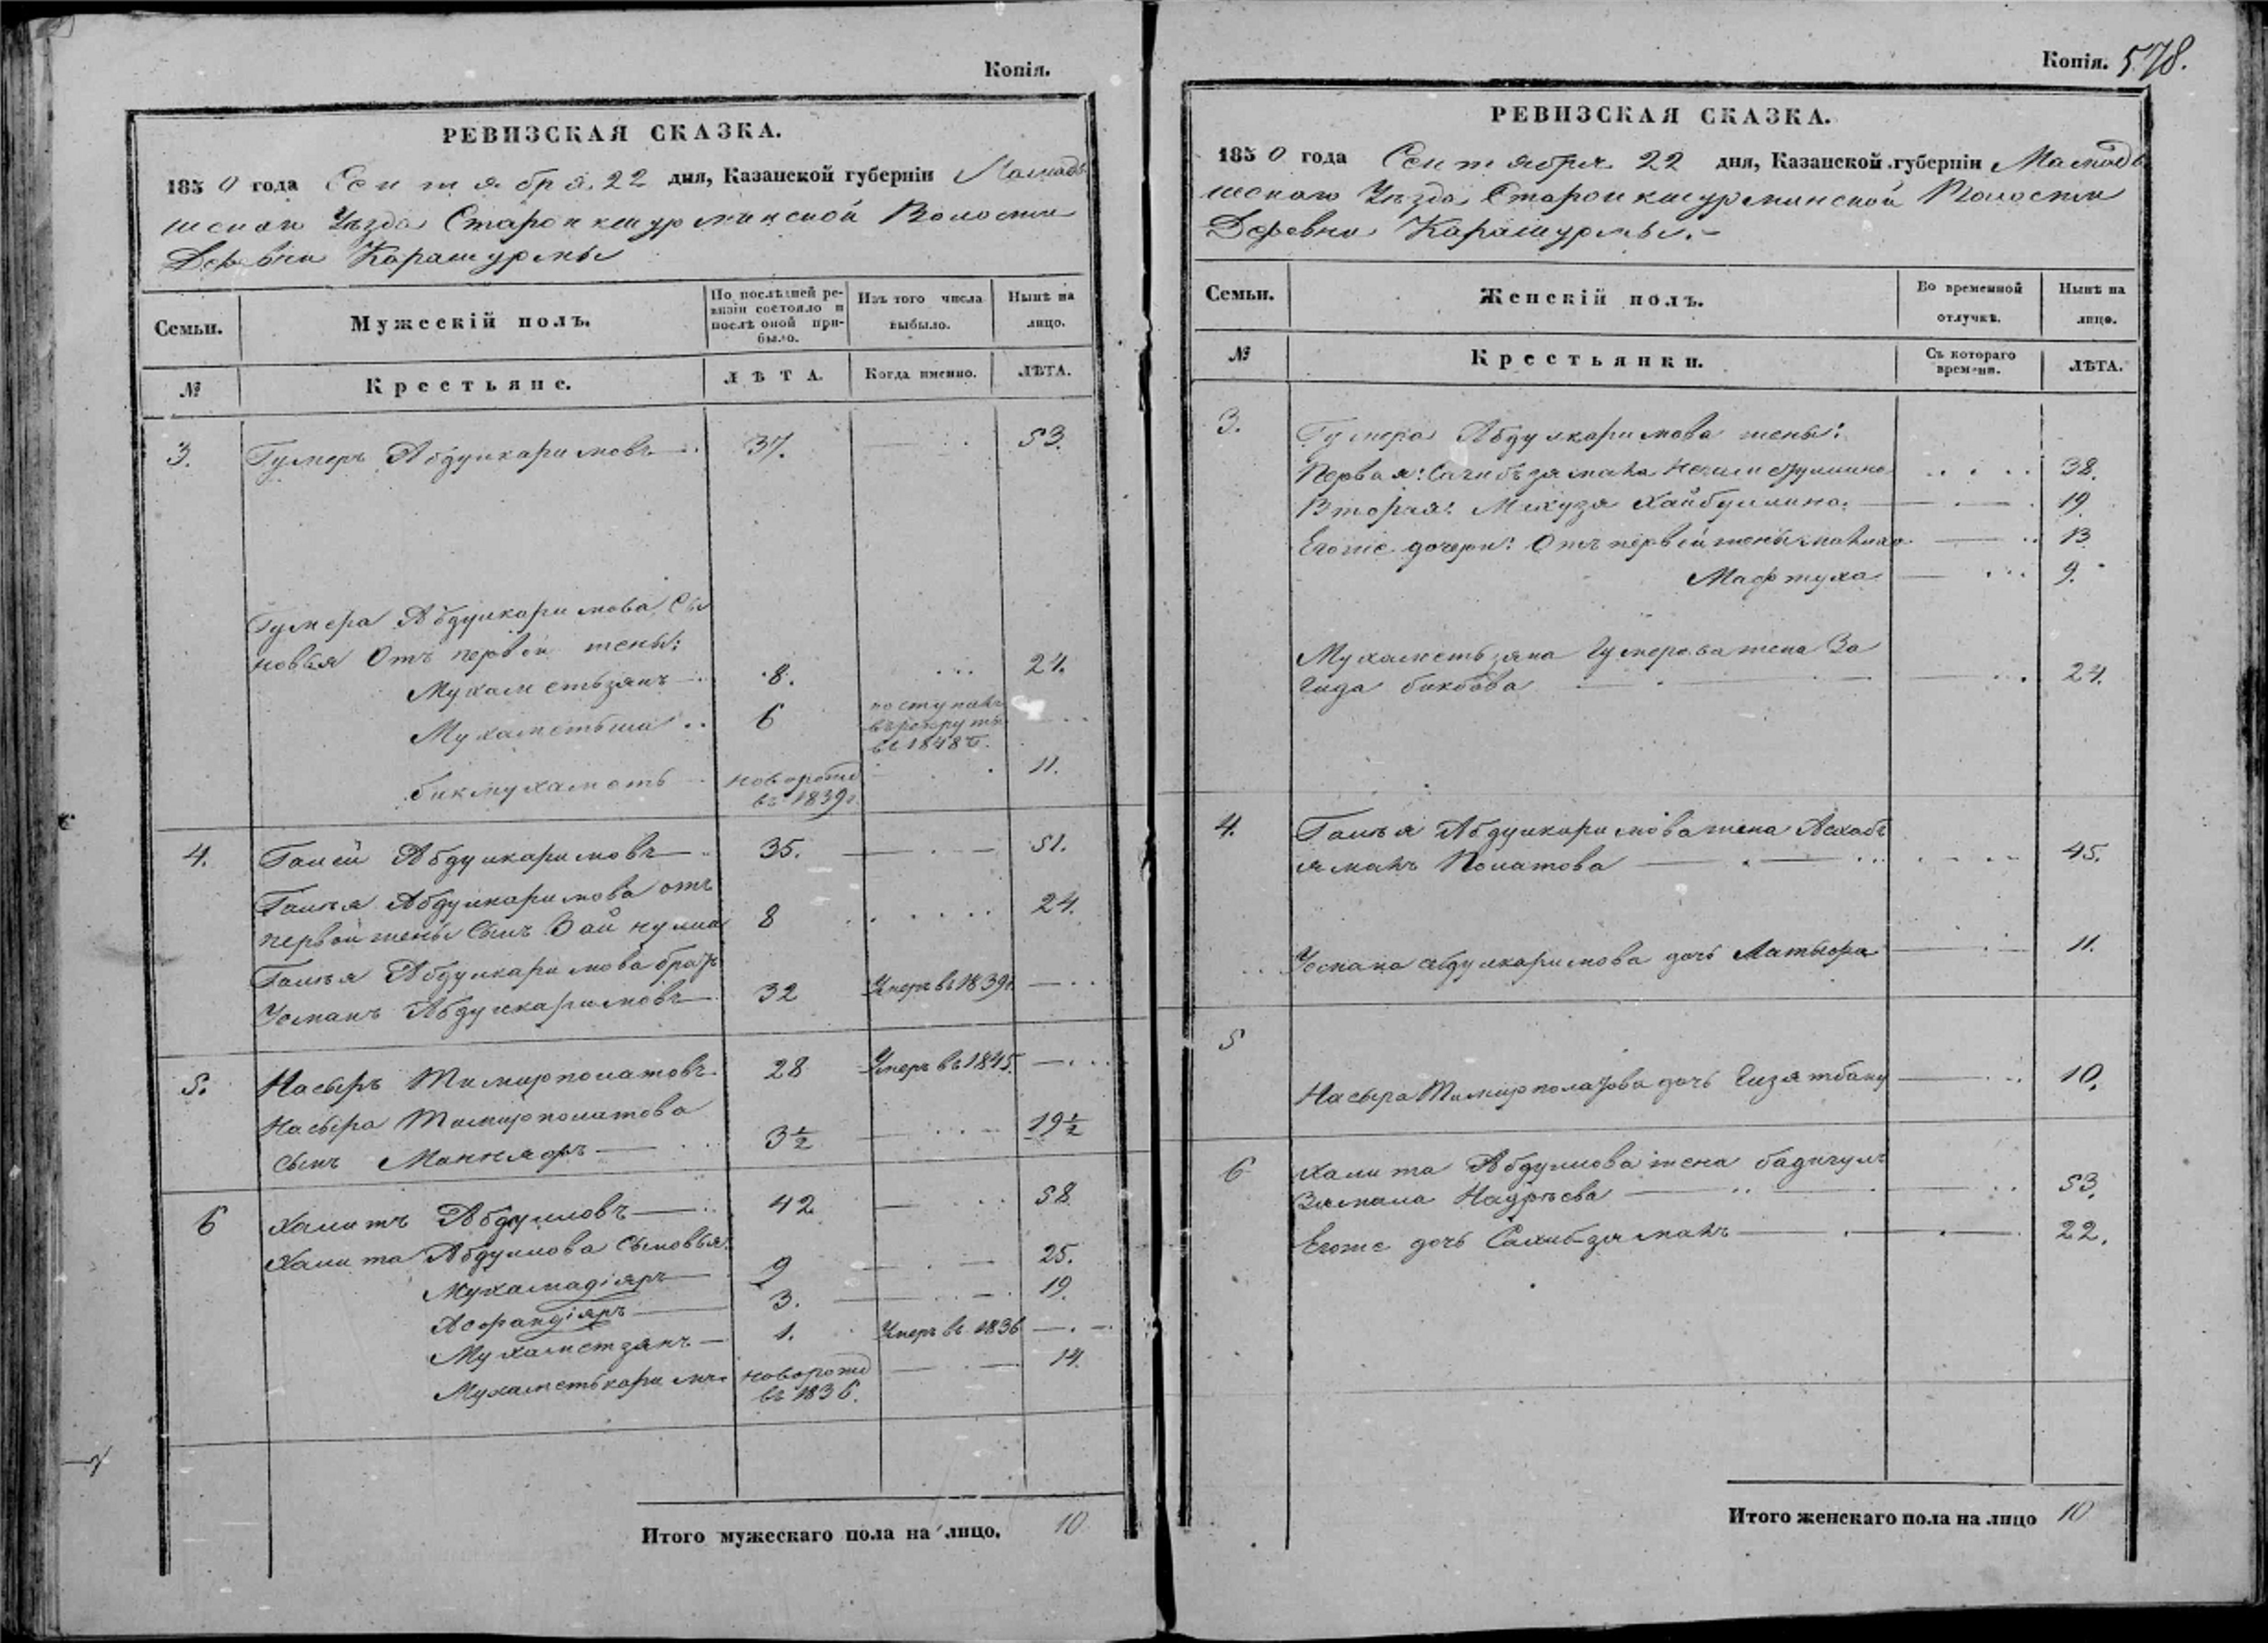 Копія.
РЕВИЗСКАЯ СКАЗКА.
1850 года Сентября 22 дня, Казанской губерніи Мамады
шскаго Уѣзда Старокишурминской Волости
Деревни Карашурмы
Семьи. Мужескій полъ. По послѣдней ревизіи состояло и послѣ оной прибыло. Изъ того числа выбыло. Нынѣ на лицо.
№ Крестьяне. ЛѢТА. Когда именно. ЛѢТА.
3. Гумеръ Абдулкаримовъ 37. 53.
Гумера Абдулкаримова Сы
новья Отъ первой жены:
Мухаметьзянъ 8. 24.
Мухаметьша 6 поступилъ въ рекруты въ 1848 г.
бикмухаметь новорожд въ 1839 г. 11.
4. Галей Абдулкаримовъ 35. 51.
Галея Абдулкаримова отъ
первой жены Сынъ Зайнулла 8 24.
Галея Абдулкаримова братъ
Усманъ Абдулкаримовъ 32 Умеръ въ 1839 г.
5. Насыръ Тимирполатовъ 28 Умеръ въ 1845.
Насыра Тимирполатова
сынъ 3½ 19½
6 Халитъ Абдулловъ 42 58
Халита Абдуллова Сыновья:
Мухамадіяръ 9 25.
Асфандіяръ 3. 19.
Мухаметзянъ 1. Умеръ въ 1836
Мухаметькаримъ новорожд въ 1836. 14.
Итого мужескаго пола на лицо. 10
Копія. 578.
РЕВИЗСКАЯ СКАЗКА.
1850 года Сентября 22 дня, Казанской губерніи Мамады
шскаго Уѣзда Старокишурминской Волости
Деревни Карашурмы.
Семьи. Женскій полъ. Во временной отлучкѣ. Нынѣ на лицо.
№ Крестьянки. Съ котораго времени. ЛѢТА.
3. Гумера Абдулкаримова жены:
Первая: 38.
Вторая: Хайбуллина. 19.
Егоже дочери: Отъ первой жены 13
Мафтуха 9.
Мухаметьзяна Гумерова жена За
гида бикбова 24.
4. Галея Абдулкаримова жена Асхабъ
яманъ Полатова 45.
Усмана абдулкаримова дочь 11.
5
Насыра Тимирполатова дочь Гизятбану 10.
6 Халита Абдуллова жена бадигулъ
Зямала Надрѣева 53.
Егоже дочь Сахибзяманъ 22.
Итого женскаго пола на лицо 10